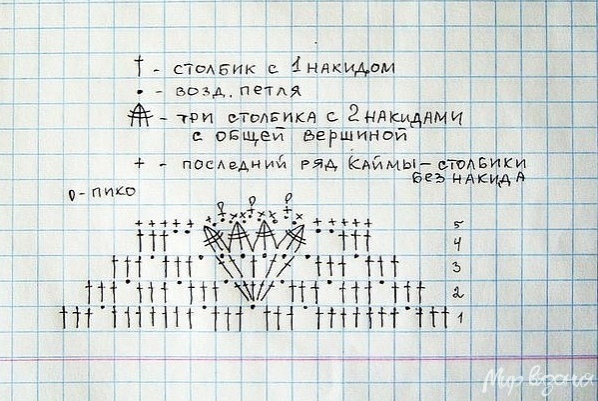 † - СТОЛБИК С 1 НАКИДОМ
• - ВОЗД. ПЕТЛЯ
- ТРИ СТОЛБИКА С 2 НАКИДАМИ
С ОБЩЕЙ ВЕРШИНОЙ
+ - ПОСЛЕДНИЙ РЯД КАЙМЫ - СТОЛБИКИ
БЕЗ НАКИДА
- ПИКО
5
4
3
2
1
Мир